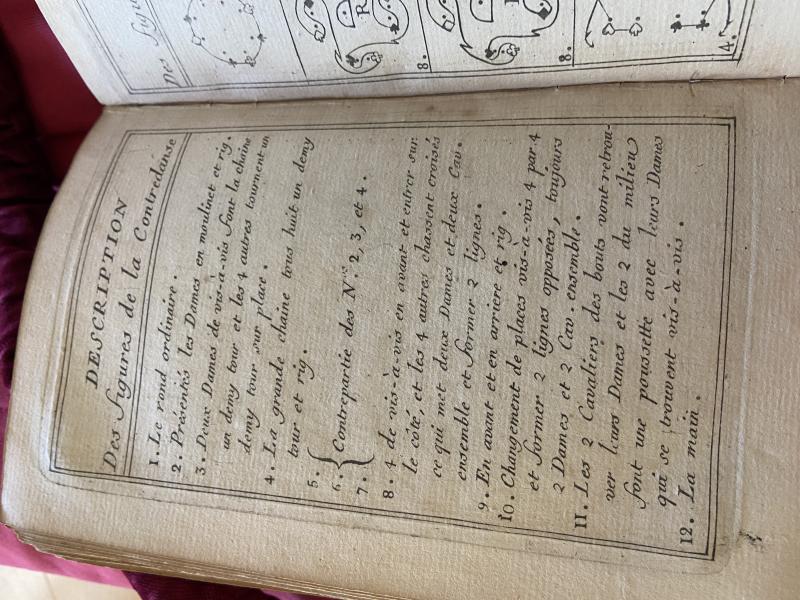 DESCRIPTION
Des figures de la Contredanse
1. Le rond ordinaire.
2. Présentés les Dames en moulinet et rig.
3. Deux Dames de vis-à-vis font la chaine
un demy tour et les 4 autres tournent un
demy tour sur place.
4. La grande chaine tous huit un demy
tour et rig.
5.
6. Contrepartie des Nos. 2, 3, et 4.
7.
8. 4 de vis-à-vis en avant et entrer sur
le côté, et les 4 autres chassent croisés
ce qui met deux Dames et deux Cav.
ensemble et former 2 lignes.
9. En avant et en arriere et rig.
10. Changement de places vis-à-vis 4 par 4
et former 2 lignes opposées, toujours
2 Dames et 2 Cav. ensemble.
11. Les 2 Cavaliers des bouts vont retrou-
ver leurs Dames et les 2 du milieu
font une poussette avec leurs Dames
qui se trouvent vis-à-vis.
12. La main.
Des
R
8.
8.
4.